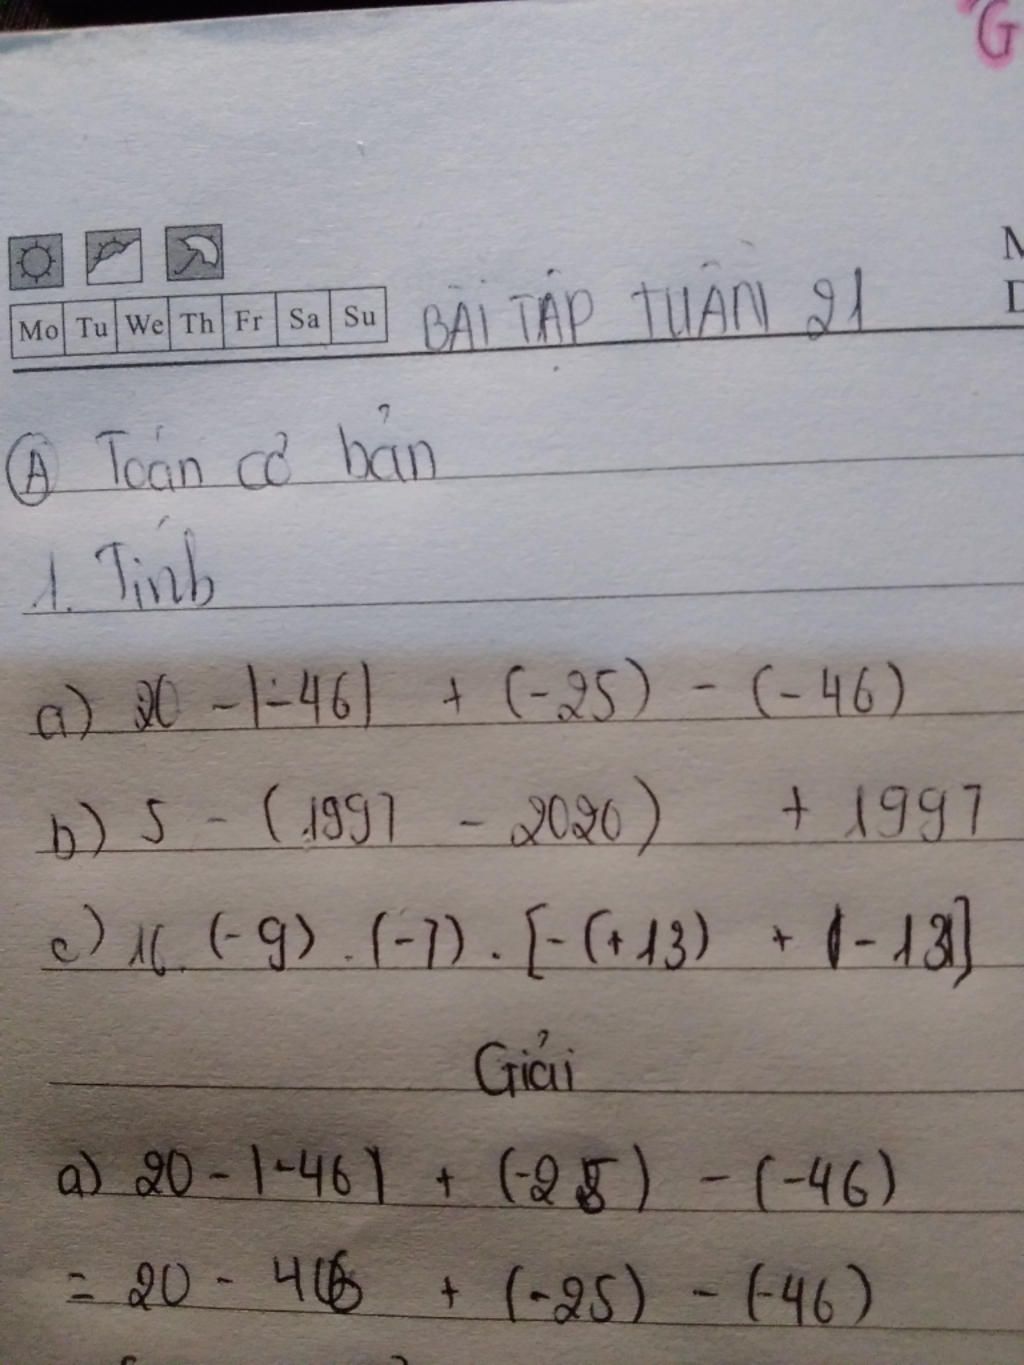 G
M
D
Mo Tu We Th Fr Sa Su BÀI TẬP TUẦN 21
Ⓐ Toán cơ bản
1. Tính
a) 20 - |-46| + (-25) - (-46)
b) 5 - (1997 - 2020) + 1997
c) 16. (-9) . (-7) . [-(+13) + |-13|]
Giải
a) 20 - |-46| + (-25) - (-46)
= 20 - 46 + (-25) - (-46)